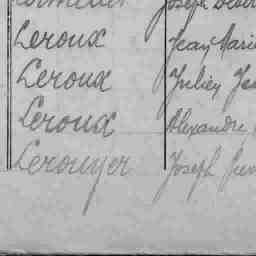 Joseph
Leroux Jean Marie
Leroux Julien
Leroux Alexandre
Lerouyer Joseph